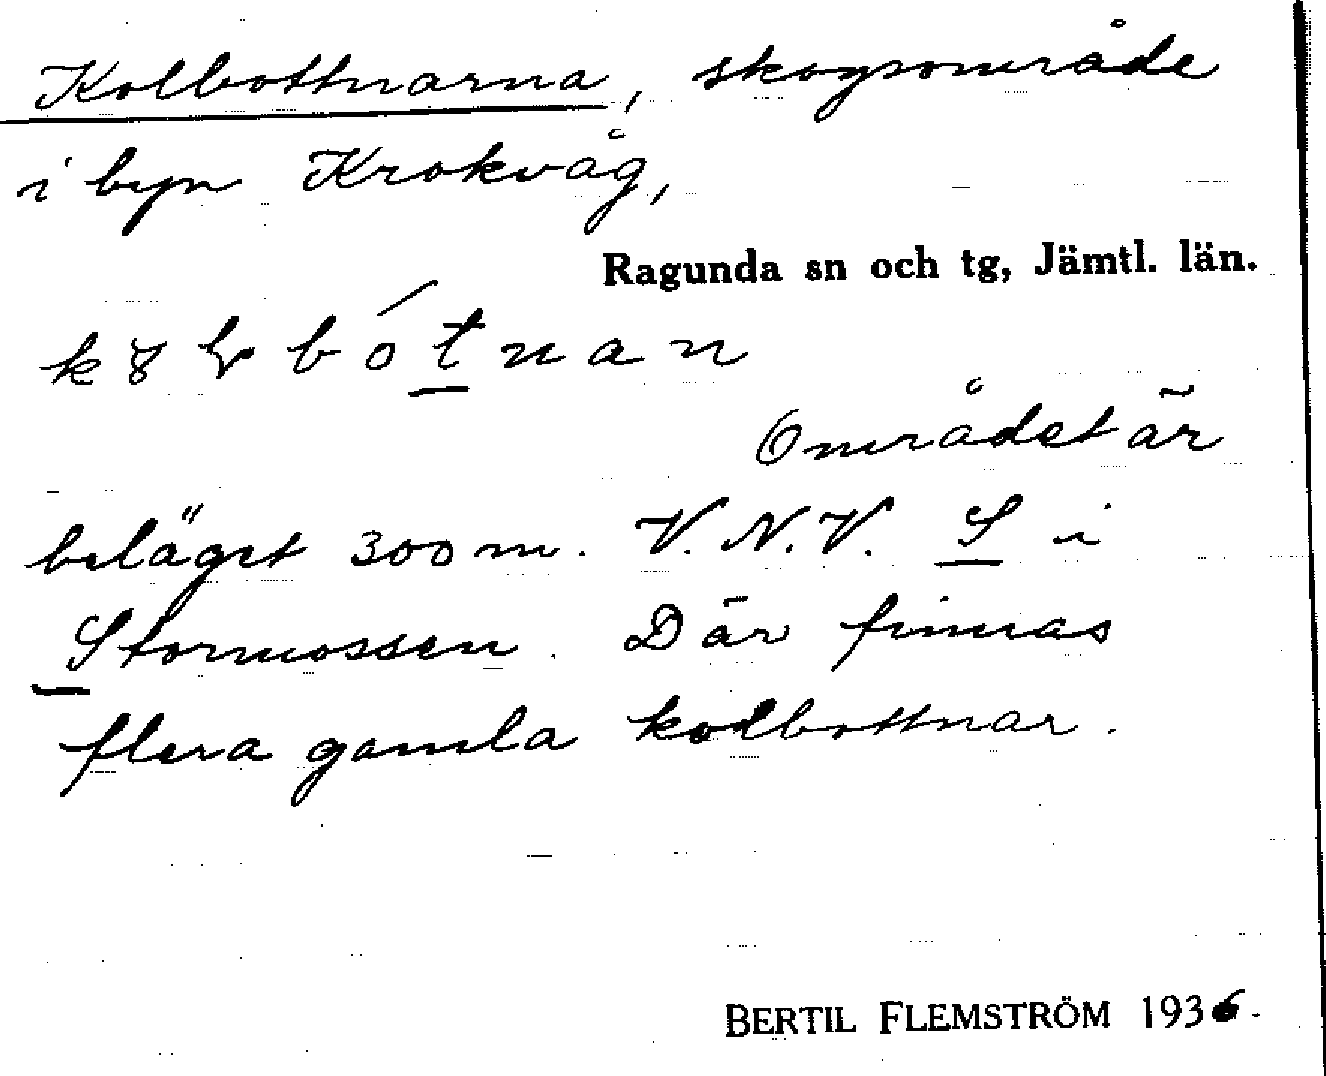 Kolbottnarna, skogsområde
i byn Krokvåg,
Ragunda sn och tg, Jämtl. län.
Området är
beläget 300 m. V.N.V. S i
Stormossen. Där finnas
flera gamla kolbottnar.
BERTIL FLEMSTRÖM 1936